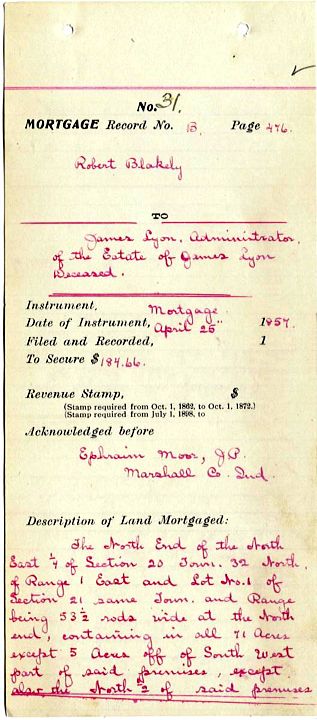 No. 31.
MORTGAGE Record No. B Page 476.
Robert Blakely
TO
James Lyon, Administrator,
of the Estate of James Lyon
Deceased.
Instrument, Mortgage.
Date of Instrument, April 25" 1857.
Filed and Recorded, 1
To Secure $184.66.
Revenue Stamp, $
(Stamp required from Oct. 1, 1862, to Oct. 1, 1872.)
(Stamp required from July 1, 1898, to
Acknowledged before
Ephraim Moor, J.P.
Marshall Co. Ind.
Description of Land Mortgaged:
The North End of the North
East 1/4 of Section 20 Town. 32 North
of Range 1 East and Lot No. 1 of
Section 21 same Town. and Range
being 53 1/2 rods wide at the North
end, containing in all 71 Acres
except 5 Acres off of South West
part of said premises, except
also the North 1/2 of said premises